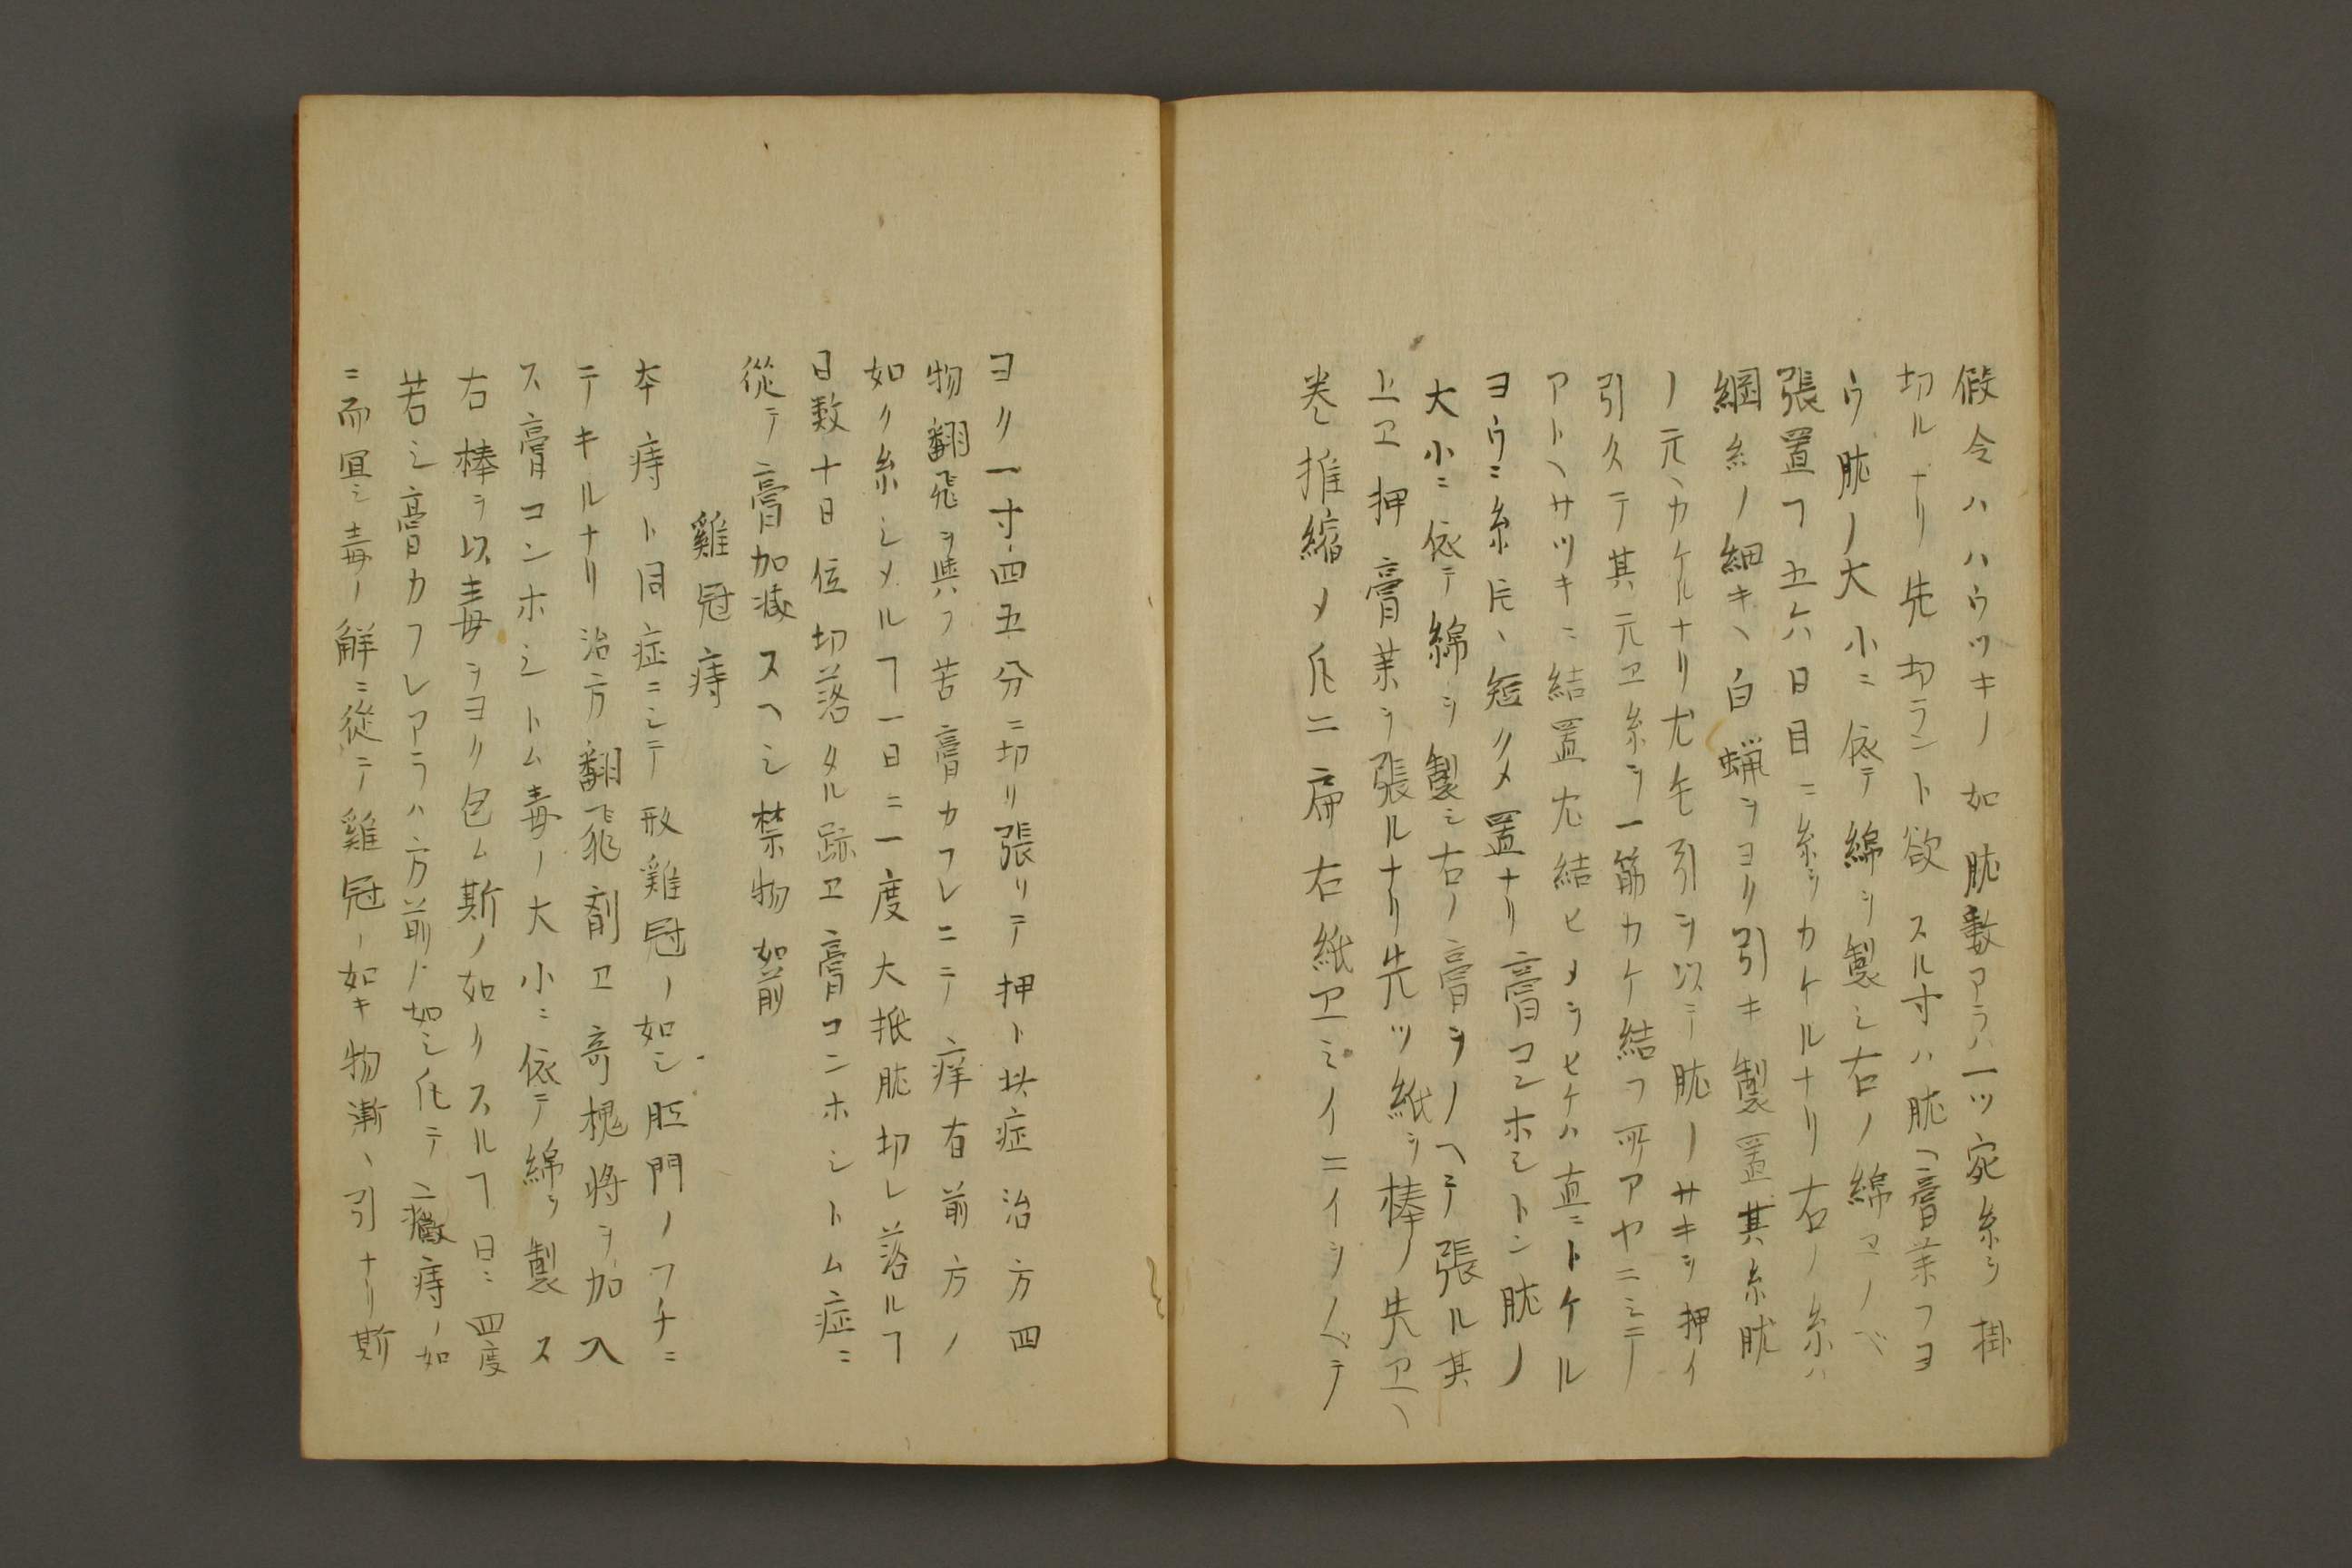 假令ハハウツキノ如肬數アラハ一ツ宛糸ヲ掛
切ルナリ先切ラント欲スル寸ハ肬ヘ膏薬フヨ
ウ肬ノ大小ニ依テ綿ヲ製シ右ノ綿ヱノベ
張置フ五六日目ニ糸ヲカケルナリ右ノ糸ハ
絹糸ノ細キヘ白蝋ヲヨリ引キ製置其糸肬
ノ元ヘカケルナリ尤モ引ヲ以テ肬ノサキヲ押イ
引久テ其元ヱ糸ヲ一筋カケ結フ所アヤニシテ
アトヘサツキニ結置尤結ヒメラヒケハ直ニトケル
ヨウニ糸ヘ短クメ置ナリ膏コンホシトン肬ノ
大小ニ依テ綿ヲ製シ右ノ膏ヲノヘテ張ル其
上ヱ押膏薬ヲ張ルナリ先ツ紙ヲ棒ノ先ヱヘ
巻推縮メ爪ニ扁右紙ヱミイニイシノベテ
ヨリ一寸四五分ニ切リ張リテ押ト此症治方四
物翻飛ヲ與フ苦膏カフレニテ痒有前方ノ
如ク糸シメルヿ一日ニ一度大抵肬切レ落ルヿ
日数十日位切落タル跡ヱ膏コンホシトム症ニ
從テ膏加減スヘシ禁物如前
雞冠痔
本痔ト同症ニシテ形雞冠ノ如シ肛門ノフチニ
テキルナリ治方翻飛剤ヱ奇槐将ヲ加入
ス膏コンホシトム毒ノ大小ニ依テ綿ヲ製ス
右棒ヲ以毒ヲヨク包ム斯ノ如クスルヿ日ニ四度
若シ膏カフレアラハ方前ノ如シ化テ臓痔ノ如
ニ而冝シ毒ノ解ニ從テ雞冠ノ如キ物漸ヽ引ナリ斯